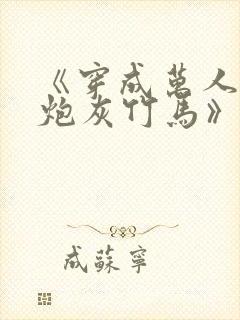 《穿成萬人
炮灰竹馬》
成蘇寧